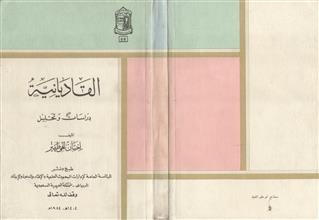 القاديانية
دراسات وتحليل
تأليف
إحسان إلهي ظهير
طبع ونشر
الرئاسة العامة لإدارات البحوث العلمية والإفتاء والدعوة والإرشاد
الرياض - المملكة العربية السعودية
وقف لله تعالى
١٤٠٤هـ - ١٩٨٤م